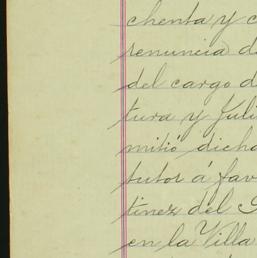 chenta y c
renuncia d
del cargo d
tura y Juli
mitió dicha
tutor á fav
tinez del S
en la Villa